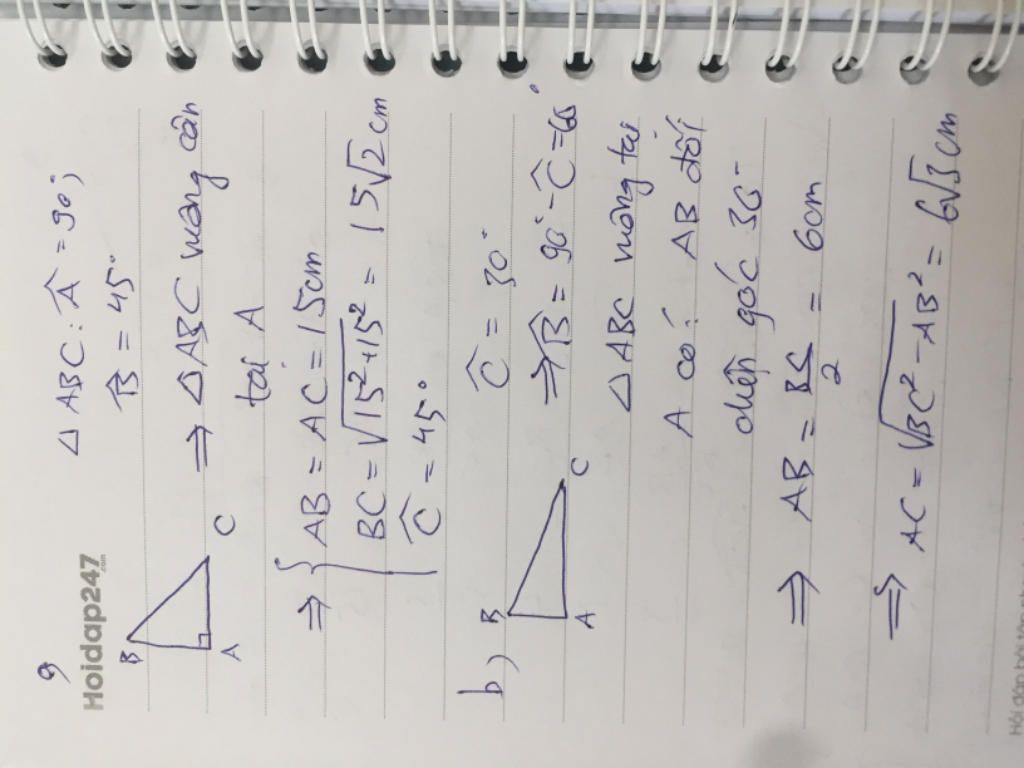 a)
Hoidap247
.com
Δ ABC: Â = 90°;
B̂ = 45°
⇒ Δ ABC vuông cân
tại A
B
A
C
⇒ { AB = AC = 15cm
BC = √15²+15² = 15√2 cm
Ĉ = 45°
b)
B
A
C
Ĉ = 30°
⇒ B̂ = 90° - Ĉ = 60°
Δ ABC vuông tại
A có: AB đối
diện góc 30°
⇒ AB = BC/2 = 6cm
⇒ AC = √BC² - AB² = 6√3 cm